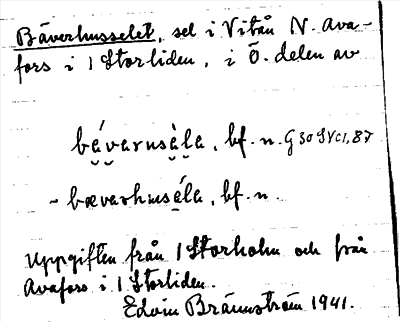 Bäverhusselet, sel i Vitån N. Ava-
fors i 1 Storliden, i Ö. delen av
bévarusèla, bf. n. G30SVc1,87
~ bæverhusèla, bf. n.
Uppgiften från 1 Storholm och från
Avafors i 1 Storliden.
Edvin Brännström 1941.